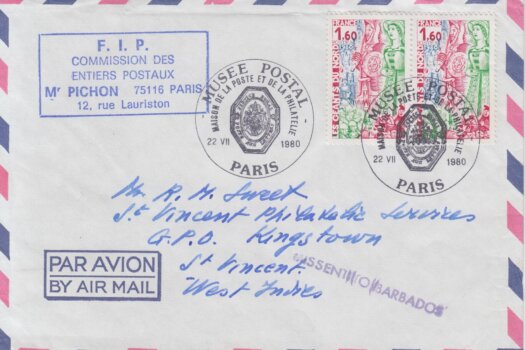 F. I. P.
COMMISSION DES
ENTIERS POSTAUX
Mr PICHON 75116 PARIS
12, rue Lauriston
MUSEE POSTAL
MAISON DE LA POSTE ET DE LA PHILATELIE
22 VII 1980
PARIS
FRANCE 1,60
LES GRANDS DU NORD
FRANCE 1,60
LES GRANDS DU NORD
MUSEE POSTAL
MAISON DE LA POSTE ET DE LA PHILATELIE
22 VII 1980
PARIS
Mr R. M. Sweet
St Vincent Philatelic Services
G.P.O. Kingstown
St Vincent.
West Indies
PAR AVION
BY AIR MAIL
MISSENT T/O BARBADOS